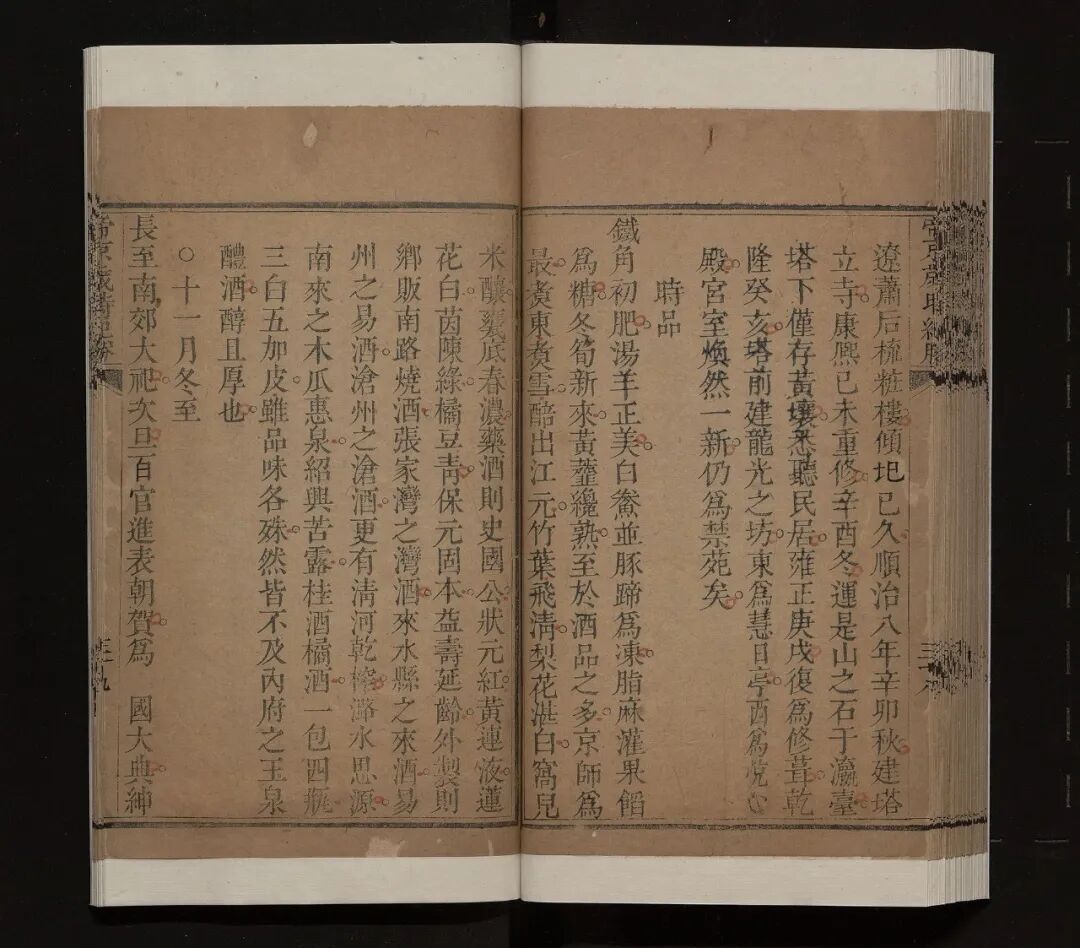 遼蕭后梳粧樓傾圮已久順治八年辛卯秋建塔
立寺康熙己未重修辛酉冬運是山之石于瀛臺
塔下僅存黃壤悉聽民居雍正庚戌復為修葺乾
隆癸亥塔前建龍光之坊東爲慧日亭西爲悅心
殿宮室煥然一新仍爲禁苑矣
時品
鐵角初肥湯羊正美白鮝並豚蹄爲凍脂麻灌果餡
爲糖冬筍新來黃虀纔熟至於酒品之多京師爲
最煑東煑雪醅出江元竹葉飛清梨花湛白窩兒
米釀甕底春濃藥酒則史國公狀元紅黃連液蓮
花白茵陳綠橘豆青保元固本益壽延齡外製則
鄉販南路燒酒張家灣之灣酒來水縣之來酒易
州之易酒滄州之滄酒更有清河乾榨潞水思源
南來之木瓜惠泉紹興苦露桂酒橘酒一包四瓶
三白五加皮雖品味各殊然皆不及內府之玉泉
醴酒醇且厚也
○十一月冬至
長至南郊大祀次旦百官進表朝賀爲 國大典紳
帝京歲時紀勝